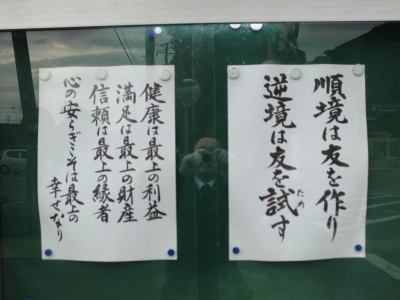 順境は友を作り
逆境は友を試す
ため
健康は最上の利益
満足は最上の財産
信頼は最上の縁者
心の安らぎこそは最上の
幸せなり